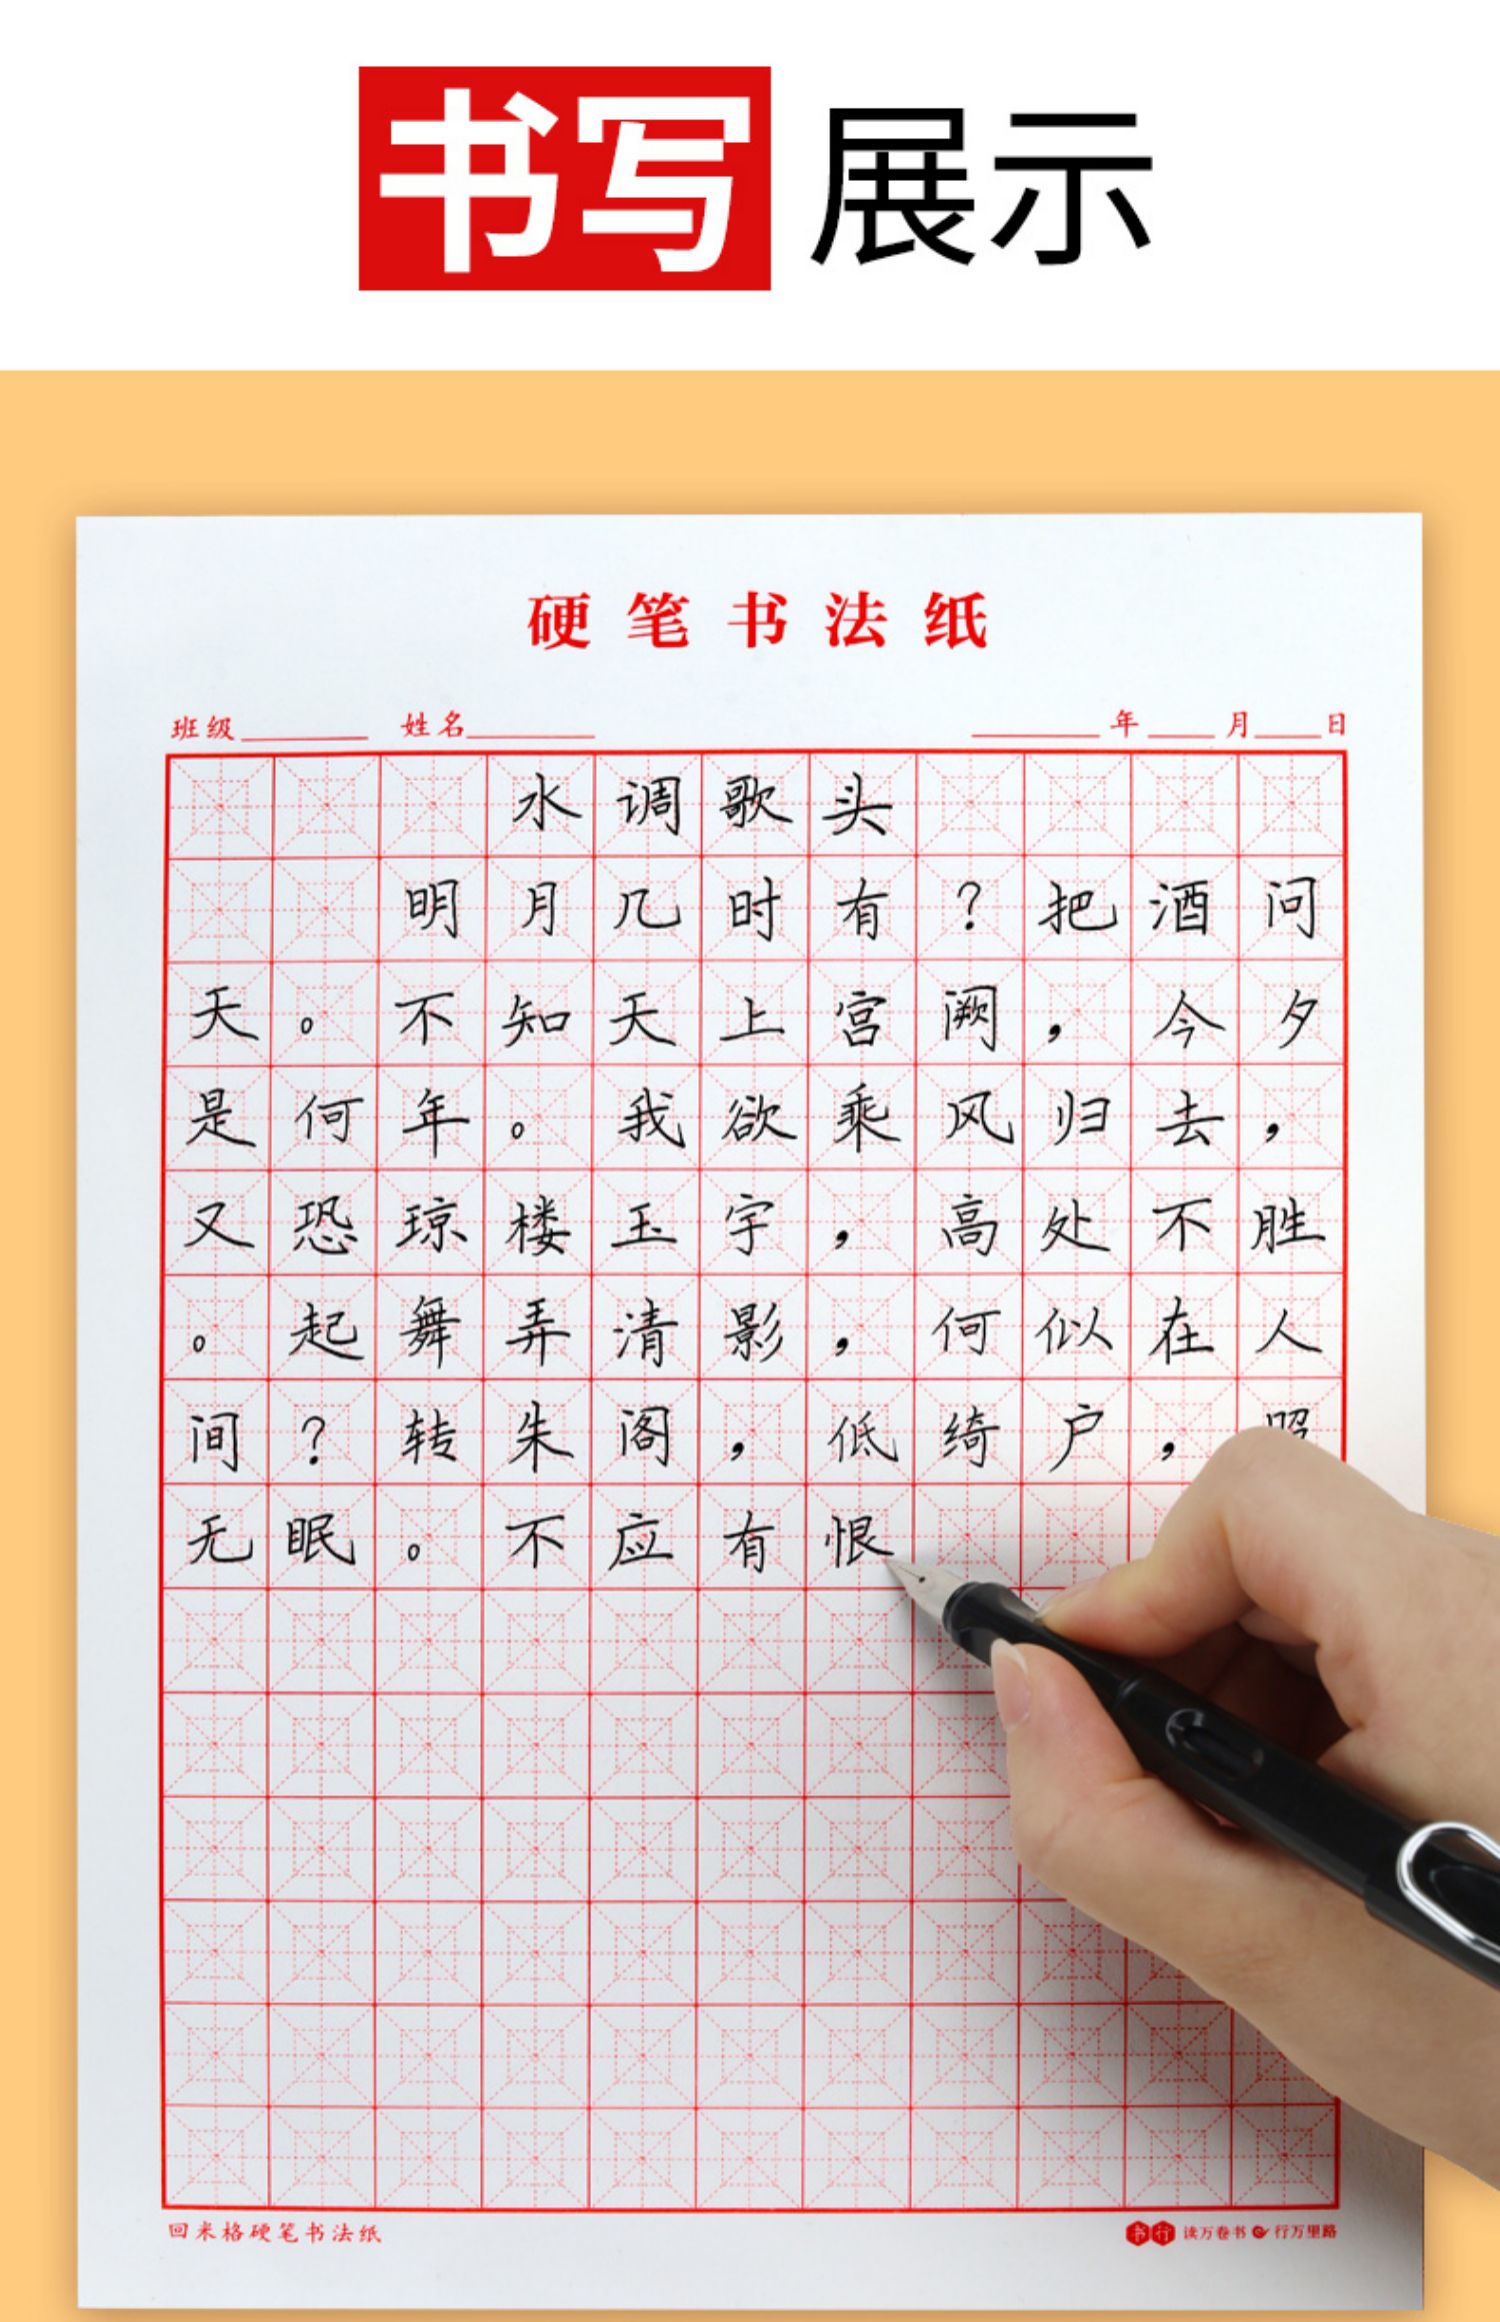 书写展示
硬笔书法纸
班级 姓名 年 月 日
水调歌头
明月几时有？把酒问
天。不知天上宫阙，今夕
是何年。我欲乘风归去，
又恐琼楼玉宇，高处不胜
。起舞弄清影，何似在人
间？转朱阁，低绮户，照
无眠。不应有恨
回米格硬笔书法纸
书行 读万卷书 行万里路